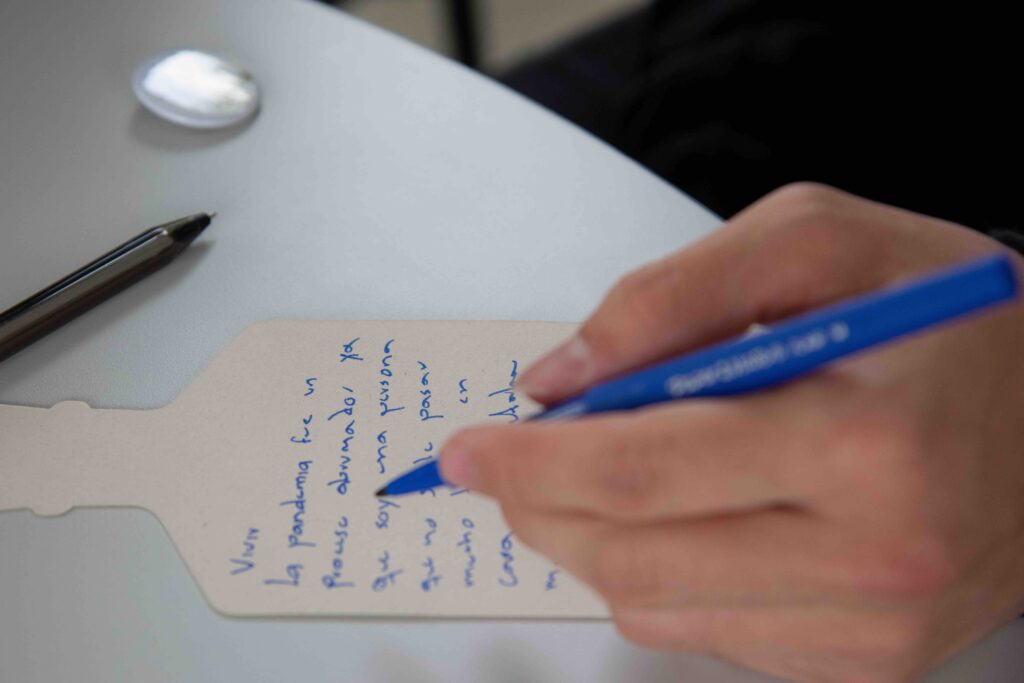 Vivir
La pandemia fue un
proceso abrumador ya
que soy una persona
que no pasar
mucho en
casa